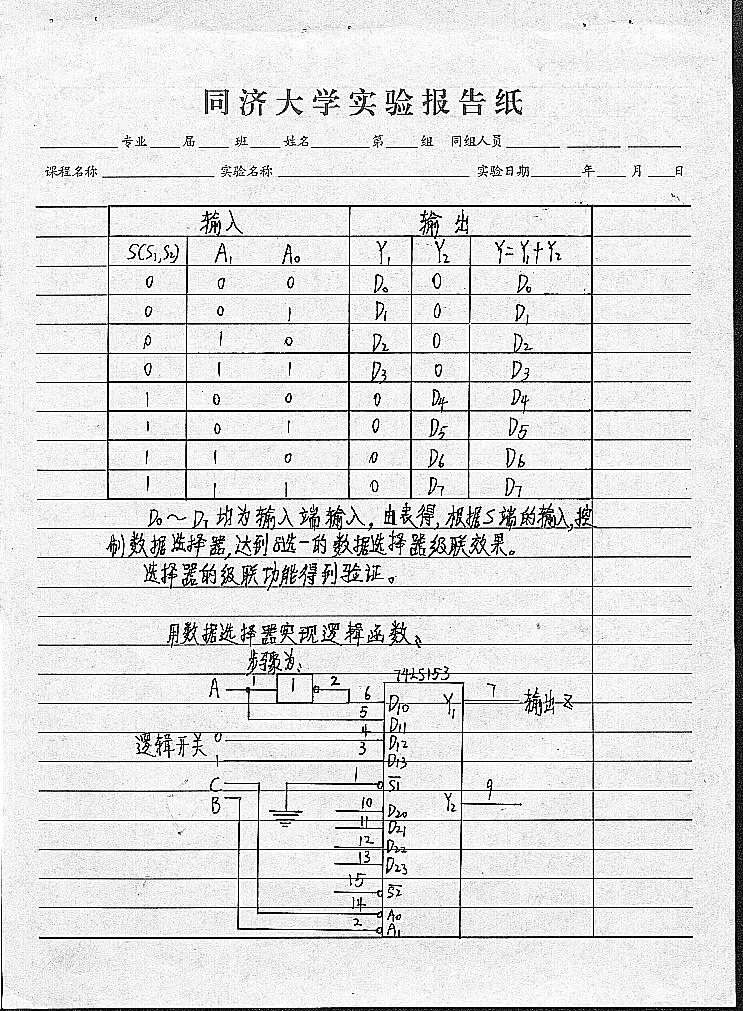 同济大学实验报告纸
专业 届 班 姓名 第 组 同组人员
课程名称 实验名称 实验日期 年 月 日
输入 输出
S(S1,S2) A1 A0 Y1 Y2 Y=Y1+Y2
0 0 0 D0 0 D0
0 0 1 D1 0 D1
0 1 0 D2 0 D2
0 1 1 D3 0 D3
1 0 0 0 D4 D4
1 0 1 0 D5 D5
1 1 0 0 D6 D6
1 1 1 0 D7 D7
D0～D7均为输入端输入，由表得，根据S端的输入，控
制数据选择器，达到8选一的数据选择器级联效果。
选择器的级联功能得到验证。
用数据选择器实现逻辑函数、
步骤为、
74LS153
A 1 1 2 6 D10 Y1 7 输出Z
5 D11
逻辑开关 0 4 D12
1 3 D13
C 1 S1
B 10 D20 Y2 9
11 D21
12 D22
13 D23
15 S2
14 A0
2 A1